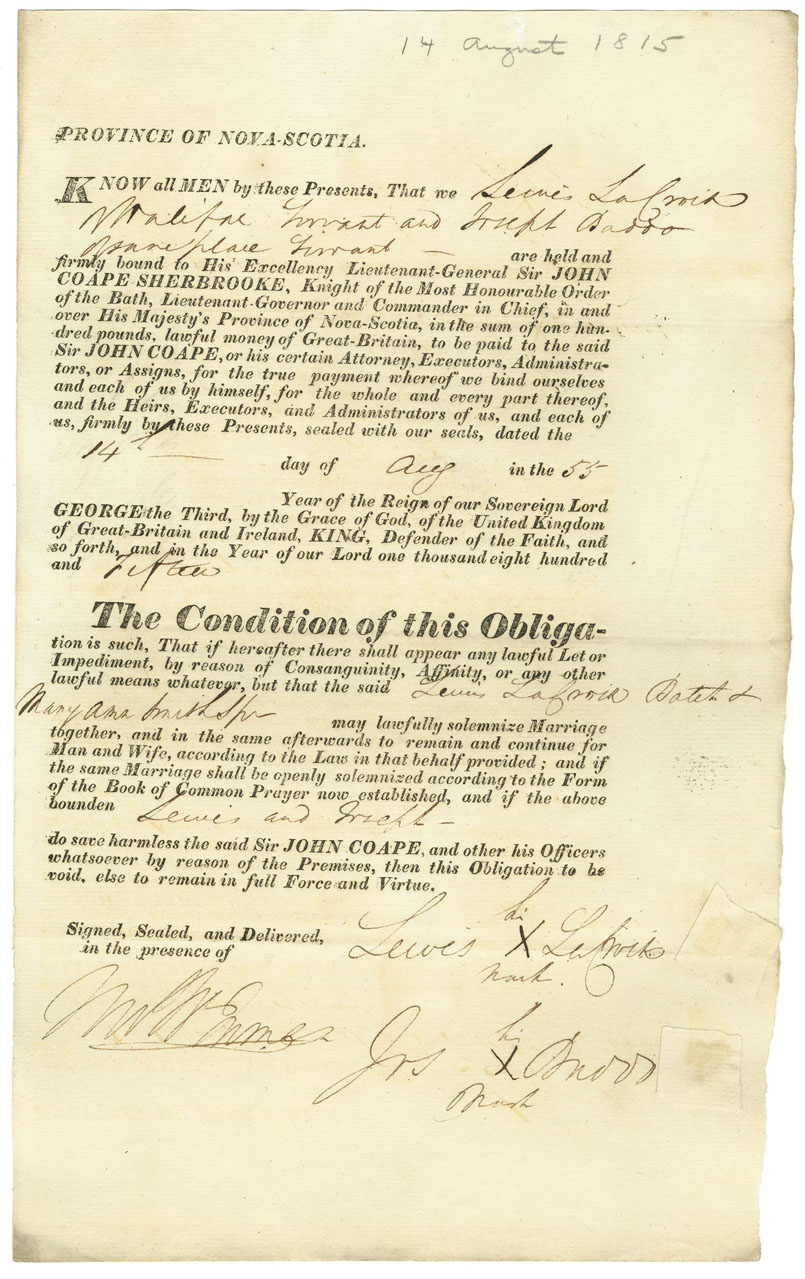 14 August 1815
PROVINCE OF NOVA-SCOTIA.
KNOW all MEN by these Presents, That we Lewis LaCroix
Halifax Servant and Joseph Baddo
of same place Servant — are held and
firmly bound to His Excellency Lieutenant-General Sir JOHN
COAPE SHERBROOKE, Knight of the Most Honourable Order
of the Bath, Lieutenant-Governor and Commander in Chief, in and
over His Majesty's Province of Nova-Scotia, in the sum of one hun-
dred pounds, lawful money of Great-Britain, to be paid to the said
Sir JOHN COAPE, or his certain Attorney, Executors, Administra-
tors, or Assigns, for the true payment whereof we bind ourselves
and each of us by himself, for the whole and every part thereof,
and the Heirs, Executors, and Administrators of us, and each of
us, firmly by these Presents, sealed with our seals, dated the
14th —
day of Aug in the 55
Year of the Reign of our Sovereign Lord
GEORGE the Third, by the Grace of God, of the United Kingdom
of Great-Britain and Ireland, KING, Defender of the Faith, and
so forth, and in the Year of our Lord one thousand eight hundred
and Fifteen
The Condition of this Obliga-
tion is such, That if hereafter there shall appear any lawful Let or
Impediment, by reason of Consanguinity, Affinity, or any other
lawful means whatever, but that the said Lewis LaCroix Batch &
Mary Ann Smith Spr
may lawfully solemnize Marriage
together, and in the same afterwards to remain and continue for
Man and Wife, according to the Law in that behalf provided; and if
the same Marriage shall be openly solemnized according to the Form
of the Book of Common Prayer now established, and if the above
bounden Lewis and Joseph —
do save harmless the said Sir JOHN COAPE, and other his Officers
whatsoever by reason of the Premises, then this Obligation to be
void, else to remain in full Force and Virtue.
Signed, Sealed, and Delivered,
in the presence of
his
Lewis X LaCroix
mark.
his
Jos X Baddo
Mark